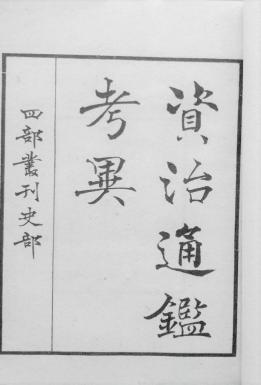 資治通鑑
考異
四部叢刊史部